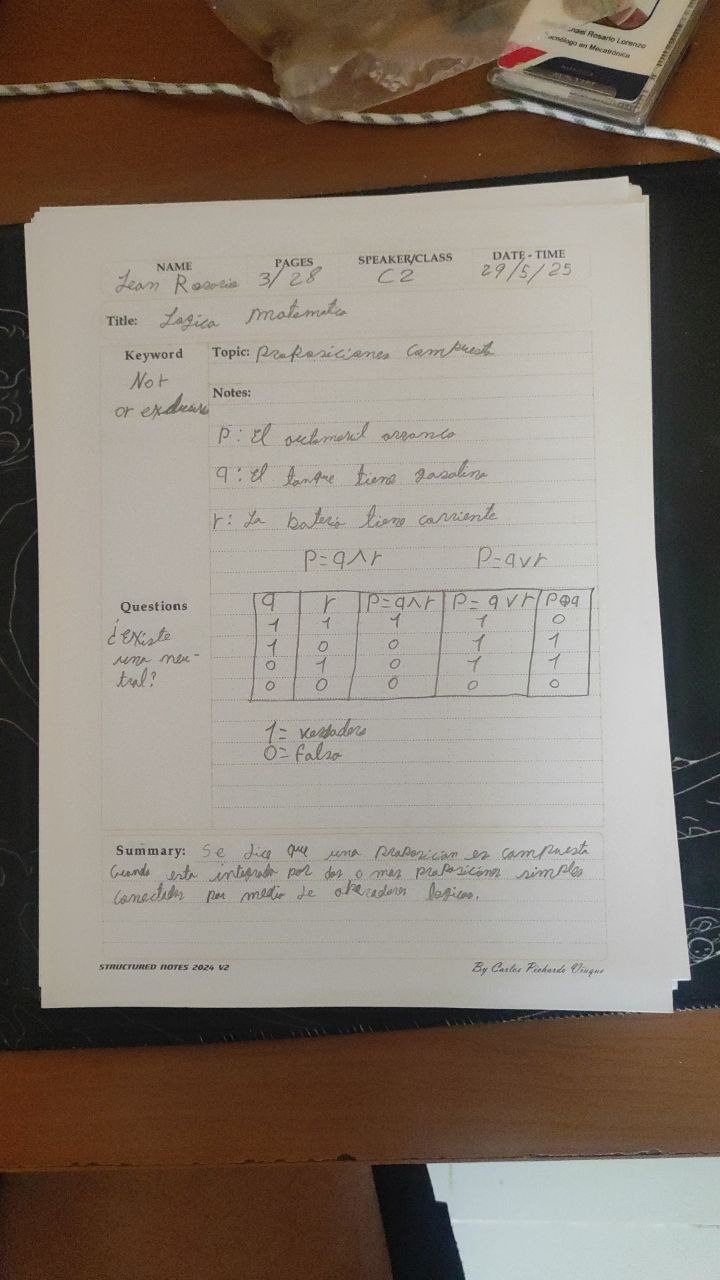 Rosario Lorenzo
Tecnólogo en Mecatrónica
NAME PAGES SPEAKER/CLASS DATE - TIME
Jean Rosario 3/28 C2 29/5/25
Title: Logica matematica
Keyword
Not
or exclusivo
Topic: proposiciones compuesta
Notes:
p: El automovil arranca
q: El tanque tiene gasolina
r: La bateria tiene corriente
p=q∧r p=q∨r
Questions
¿Existe
una neu-
tral?
q r p=q∧r p=q∨r p⊕q
1 1 1 1 0
1 0 0 1 1
0 1 0 1 1
0 0 0 0 0
1= verdadero
0= Falso
Summary: Se dice que una proposicion es compuesta
Cuando esta integrada por dos o mas proposiciones simples
conectadas por medio de operadores logicos.
STRUCTURED NOTES 2024 V2 By Carlos Pichardo Viuque